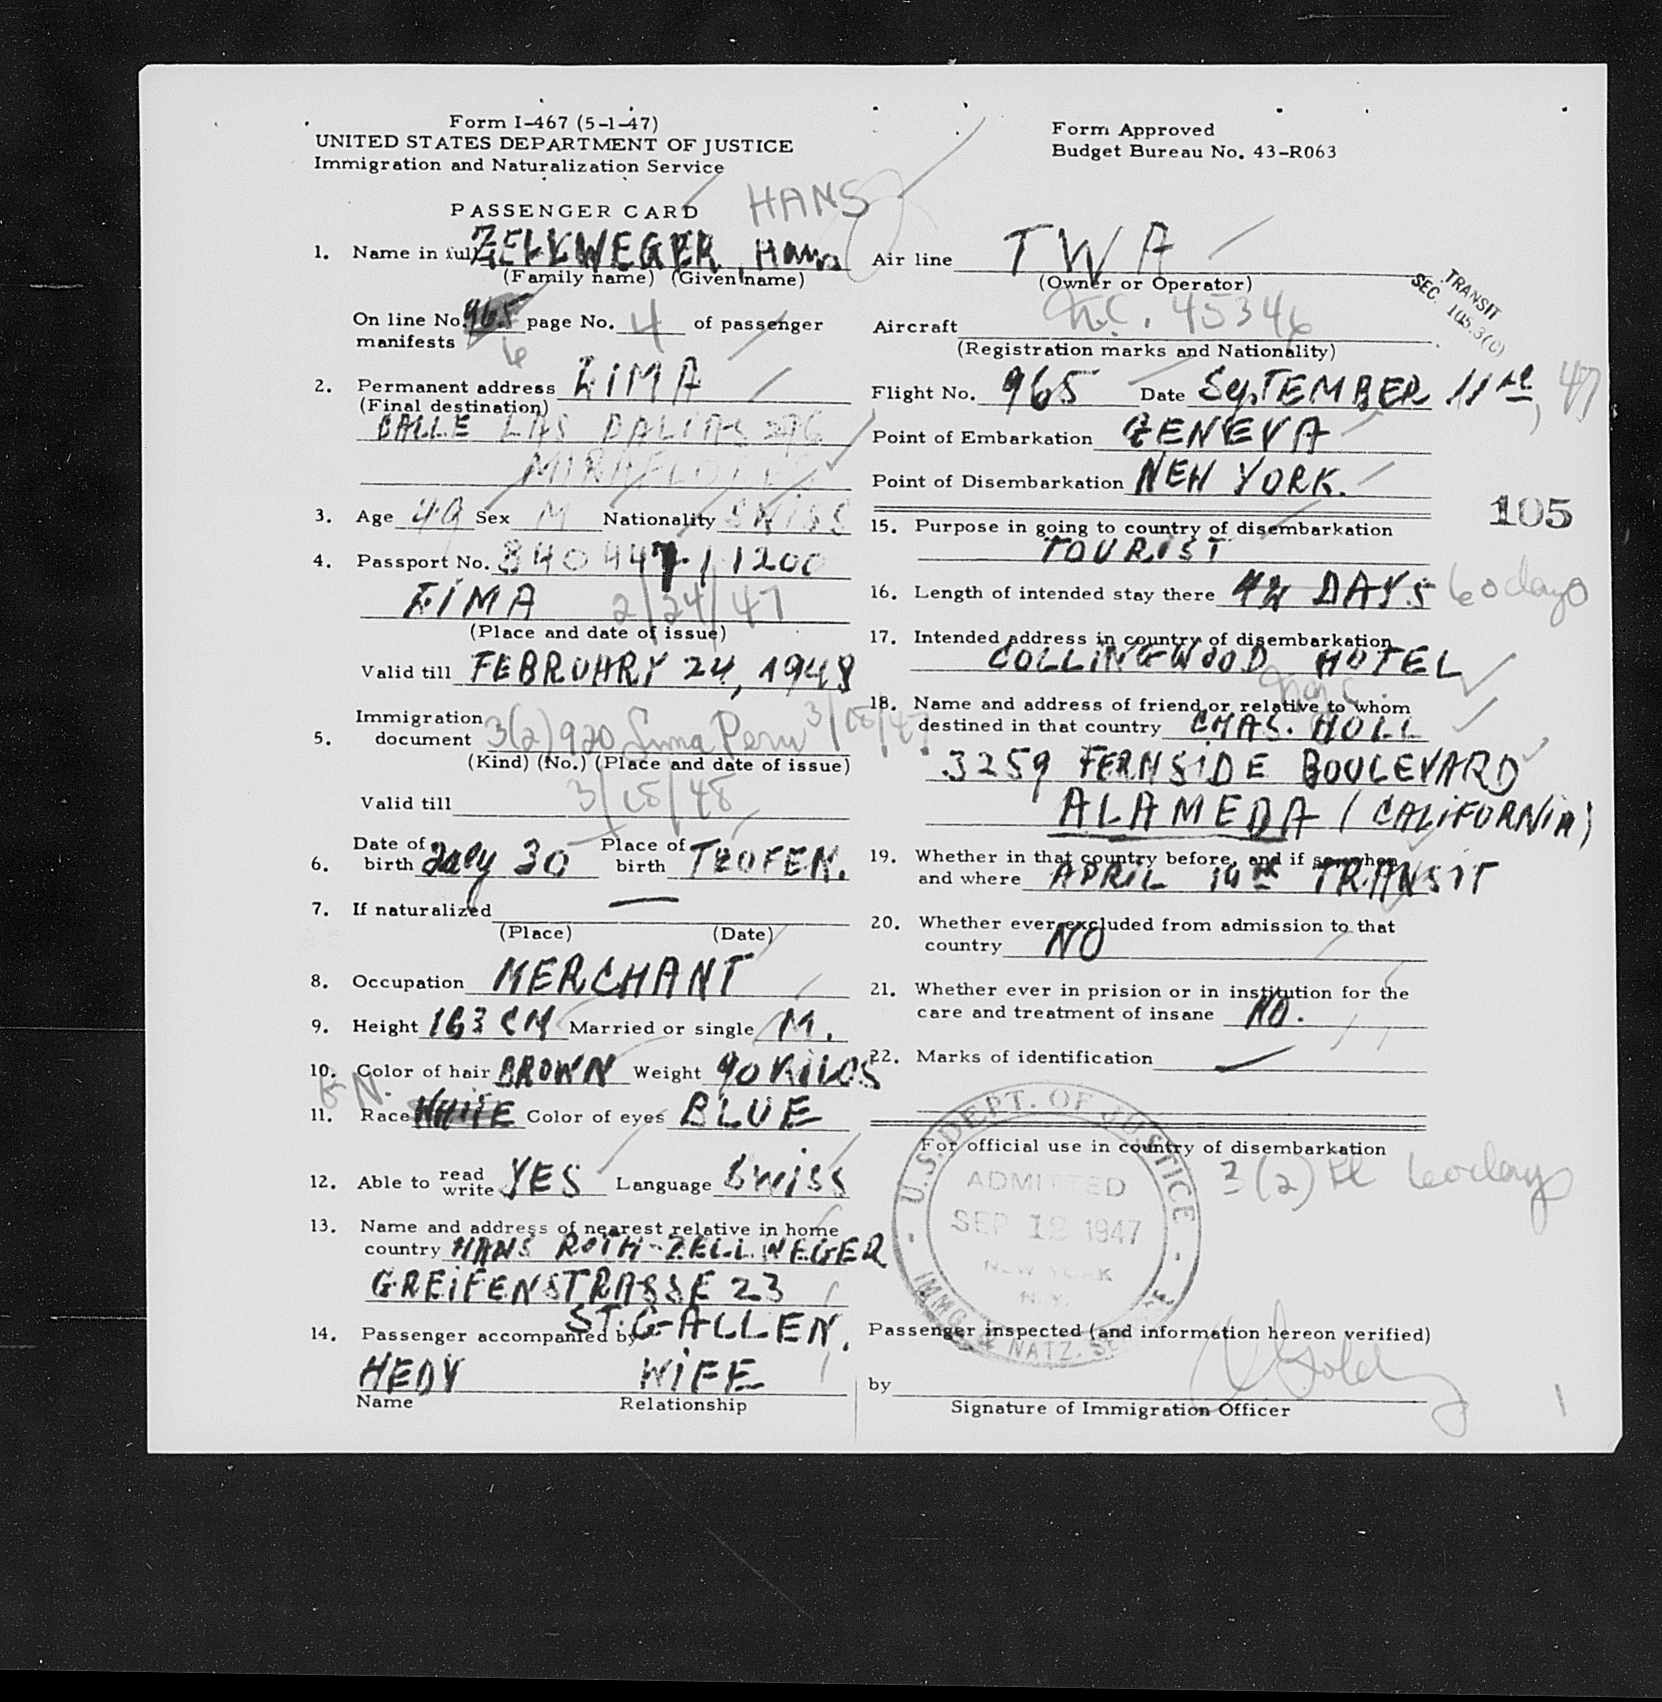 Form I-467 (5-1-47)
UNITED STATES DEPARTMENT OF JUSTICE
Immigration and Naturalization Service
Form Approved
Budget Bureau No. 43-R063
PASSENGER CARD
HANS
1. Name in full ZELLWEGER, Hans
(Family name) (Given name)
On line No. 965 page No. 4 of passenger
manifests 6
2. Permanent address LIMA
(Final destination)
CALLE LAS DALIAS 296
MIRAFLORES
3. Age 49 Sex M Nationality SWISS
4. Passport No. 840447 / 1200
LIMA 2/24/47
(Place and date of issue)
Valid till FEBRUARY 24, 1948
Immigration
5. document 3(2) 920 Lima Peru 3/18/47
(Kind) (No.) (Place and date of issue)
Valid till 3/18/48
6. Date of birth July 30 Place of birth TEOFEN.
7. If naturalized —
(Place) (Date)
8. Occupation MERCHANT
9. Height 163 CM Married or single M.
10. Color of hair BROWN Weight 90 KILOS
11. Race WHITE Color of eyes BLUE
12. Able to read write YES Language SWISS
13. Name and address of nearest relative in home
country HANS ROTH-ZELLWEGER
GREIFENSTRASSE 23
ST. GALLEN.
14. Passenger accompanied by
HEDY WIFE
Name Relationship
Air line TWA
(Owner or Operator)
TRANSIT
SEC. 105.3(C)
Aircraft N.C. 45346
(Registration marks and Nationality)
Flight No. 965 Date SepTEMBER 11, 47
Point of Embarkation GENEVA
Point of Disembarkation NEW YORK.
105
15. Purpose in going to country of disembarkation
TOURIST
16. Length of intended stay there 42 DAYS 60 days
17. Intended address in country of disembarkation
COLLINGWOOD HOTEL
N.Y.C.
18. Name and address of friend or relative to whom
destined in that country CHAS. HOLL
3259 FERNSIDE BOULEVARD
ALAMEDA / CALIFORNIA)
19. Whether in that country before, and if so, when
and where APRIL 14th TRANSIT
20. Whether ever excluded from admission to that
country NO
21. Whether ever in prision or in institution for the
care and treatment of insane NO.
22. Marks of identification —
For official use in country of disembarkation
3(2) 60 days
U.S. DEPT. OF JUSTICE
ADMITTED
SEP 12 1947
NEW YORK
N.Y.
IMMG. & NATZ. SERVICE
Passenger inspected (and information hereon verified)
by
Signature of Immigration Officer